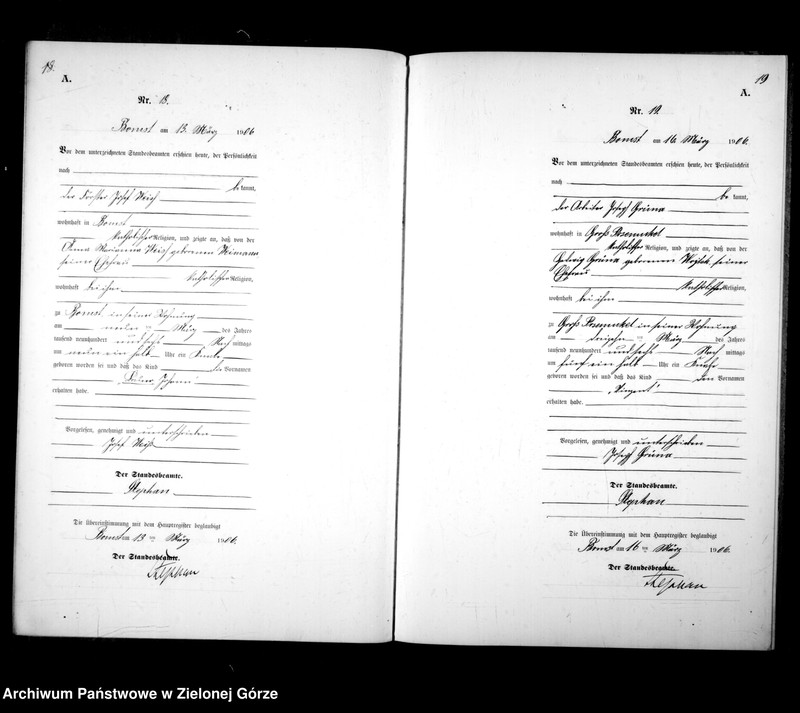 18.
A.
Nr. 18.
Bomst am 13. März 1906
Vor dem unterzeichneten Standesbeamten erschien heute, der Persönlichkeit
nach
be kannt,
der Förster Josef
wohnhaft in Bomst
katholischer Religion, und zeigte an, daß von der
Anna Marianna geborenen
seiner Ehefrau
katholischer Religion,
wohnhaft bei ihm
zu Bomst in seiner Wohnung
am ten März des Jahres
tausend neunhundert und sechs Nach mittags
um ein halb Uhr ein Knabe
geboren worden sei und daß das Kind den Vornamen
Johann
erhalten habe.
Vorgelesen, genehmigt und unterschrieben
Josef
Der Standesbeamte.
Stephan
Die Übereinstimmung mit dem Hauptregister beglaubigt
Bomst am 13 ten März 1906.
Der Standesbeamte.
Stephan
19
A.
Nr. 19.
Bomst am 16. März 1906.
Vor dem unterzeichneten Standesbeamten erschien heute, der Persönlichkeit
nach
be kannt,
der Arbeiter Josef Grüna
wohnhaft in Groß Posemukel
katholischer Religion, und zeigte an, daß von der
Hedwig Grüna geborenen seiner
Ehefrau
katholischer Religion,
wohnhaft bei ihm
zu Groß Posemukel in seiner Wohnung
am ten März des Jahres
tausend neunhundert und sechs Nach mittags
um fünf ein halb Uhr ein Knabe
geboren worden sei und daß das Kind den Vornamen
„Vinzent“
erhalten habe.
Vorgelesen, genehmigt und unterschrieben
Josef Grüna
Der Standesbeamte.
Stephan
Die Übereinstimmung mit dem Hauptregister beglaubigt
Bomst am 16 ten März 1906.
Der Standesbeamte.
Stephan
Archiwum Państwowe w Zielonej Górze